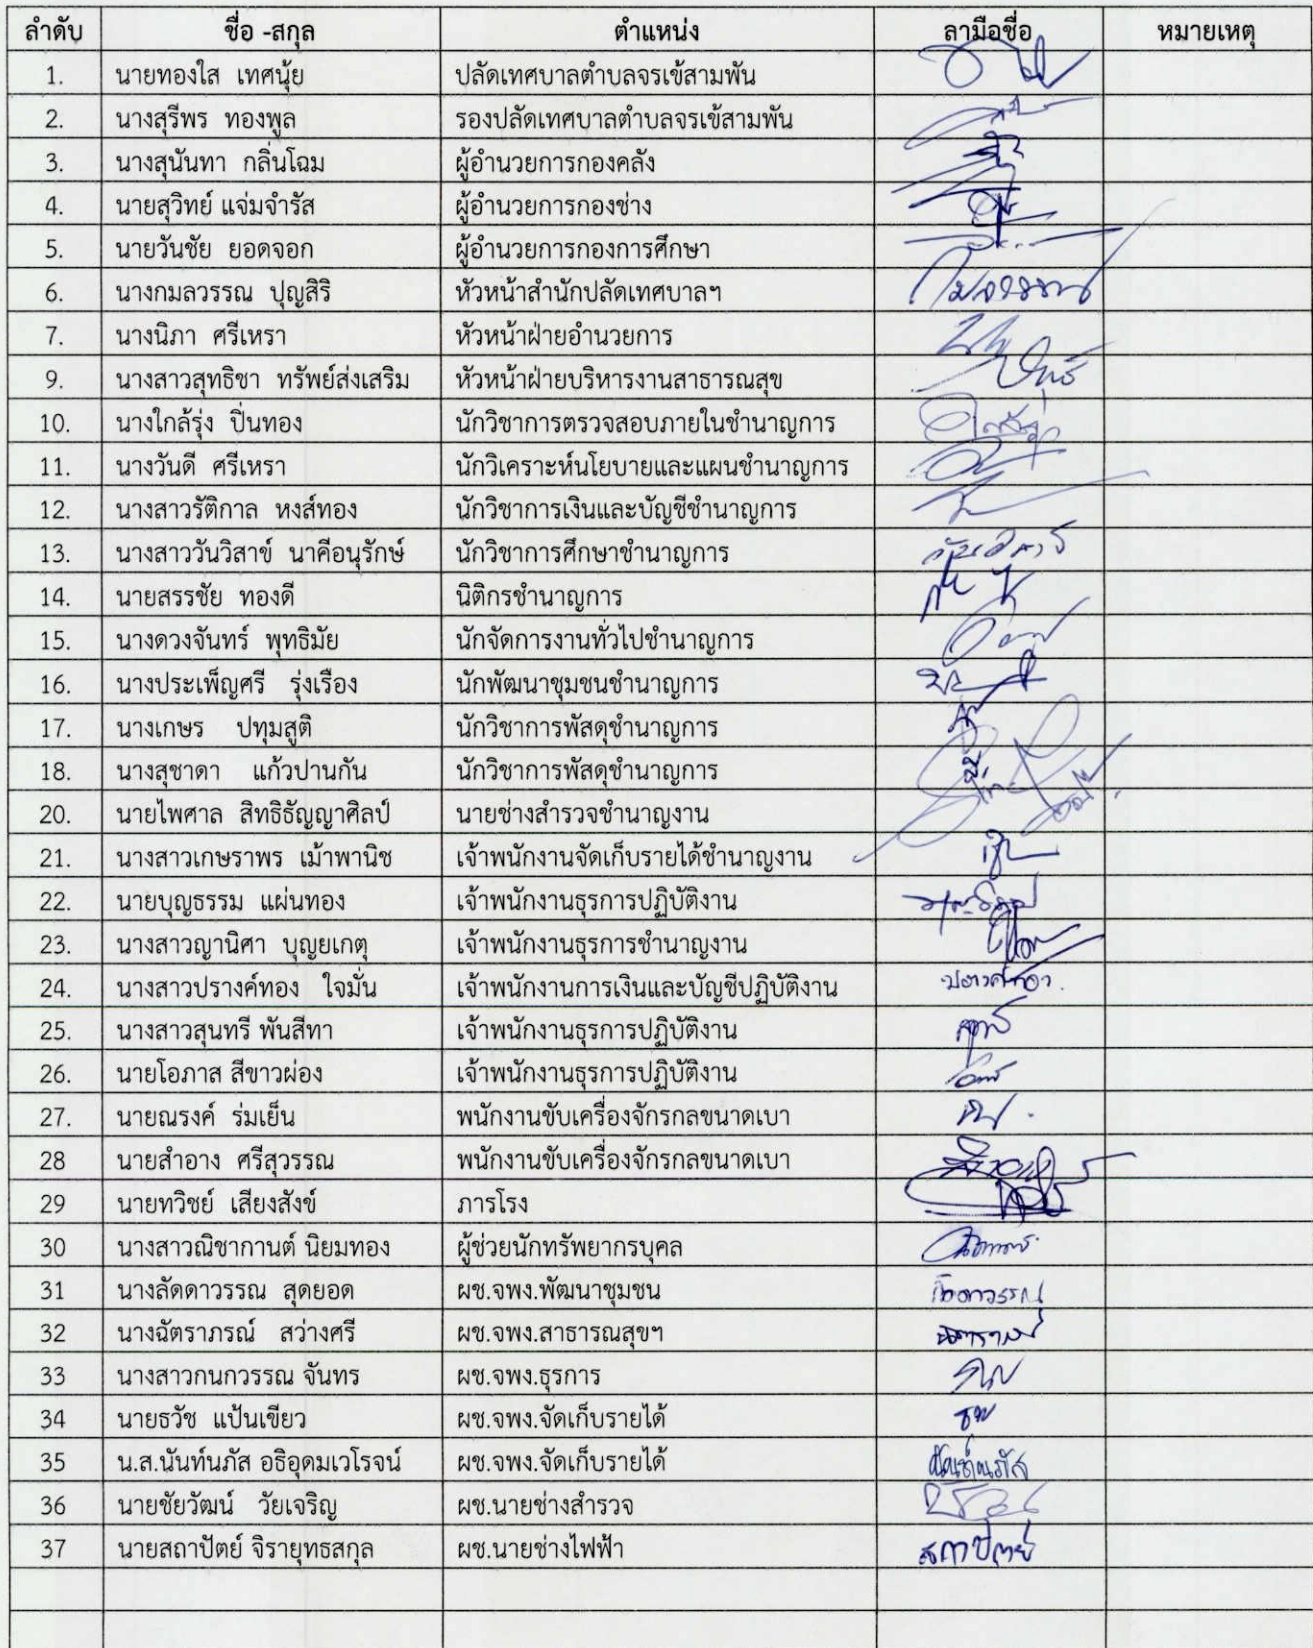 ลำดับ ชื่อ -สกุล ตำแหน่ง ลามือชื่อ หมายเหตุ
1. นายทองใส เทศนุ้ย ปลัดเทศบาลตำบลจรเข้สามพัน
2. นางสุรีพร ทองพูล รองปลัดเทศบาลตำบลจรเข้สามพัน
3. นางสุนันทา กลิ่นโฉม ผู้อำนวยการกองคลัง
4. นายสุวิทย์ แจ่มจำรัส ผู้อำนวยการกองช่าง
5. นายวันชัย ยอดจอก ผู้อำนวยการกองการศึกษา
6. นางกมลวรรณ ปุญสิริ หัวหน้าสำนักปลัดเทศบาลฯ
7. นางนิภา ศรีเหรา หัวหน้าฝ่ายอำนวยการ
9. นางสาวสุทธิชา ทรัพย์ส่งเสริม หัวหน้าฝ่ายบริหารงานสาธารณสุข
10. นางใกล้รุ่ง ปิ่นทอง นักวิชาการตรวจสอบภายในชำนาญการ
11. นางวันดี ศรีเหรา นักวิเคราะห์นโยบายและแผนชำนาญการ
12. นางสาวรัติกาล หงส์ทอง นักวิชาการเงินและบัญชีชำนาญการ
13. นางสาววันวิสาข์ นาคีอนุรักษ์ นักวิชาการศึกษาชำนาญการ
14. นายสรรชัย ทองดี นิติกรชำนาญการ
15. นางดวงจันทร์ พุทธิมัย นักจัดการงานทั่วไปชำนาญการ
16. นางประเพ็ญศรี รุ่งเรือง นักพัฒนาชุมชนชำนาญการ
17. นางเกษร ปทุมสูติ นักวิชาการพัสดุชำนาญการ
18. นางสุชาดา แก้วปานกัน นักวิชาการพัสดุชำนาญการ
20. นายไพศาล สิทธิธัญญาศิลป์ นายช่างสำรวจชำนาญงาน
21. นางสาวเกษราพร เม้าพานิช เจ้าพนักงานจัดเก็บรายได้ชำนาญงาน
22. นายบุญธรรม แผ่นทอง เจ้าพนักงานธุรการปฏิบัติงาน
23. นางสาวญานิศา บุญยเกตุ เจ้าพนักงานธุรการชำนาญงาน
24. นางสาวปรางค์ทอง ใจมั่น เจ้าพนักงานการเงินและบัญชีปฏิบัติงาน
25. นางสาวสุนทรี พันสีทา เจ้าพนักงานธุรการปฏิบัติงาน
26. นายโอภาส สีขาวผ่อง เจ้าพนักงานธุรการปฏิบัติงาน
27. นายณรงค์ ร่มเย็น พนักงานขับเครื่องจักรกลขนาดเบา
28 นายสำอาง ศรีสุวรรณ พนักงานขับเครื่องจักรกลขนาดเบา
29 นายทวิชย์ เสียงสังข์ ภารโรง
30 นางสาวณิชากานต์ นิยมทอง ผู้ช่วยนักทรัพยากรบุคล
31 นางลัดดาวรรณ สุดยอด ผช.จพง.พัฒนาชุมชน
32 นางฉัตราภรณ์ สว่างศรี ผช.จพง.สาธารณสุขฯ
33 นางสาวกนกวรรณ จันทร ผช.จพง.ธุรการ
34 นายธวัช แป้นเขียว ผช.จพง.จัดเก็บรายได้
35 น.ส.นันท์นภัส อธิอุดมเวโรจน์ ผช.จพง.จัดเก็บรายได้
36 นายชัยวัฒน์ วัยเจริญ ผช.นายช่างสำรวจ
37 นายสถาปัตย์ จิรายุทธสกุล ผช.นายช่างไฟฟ้า สถาปัตย์